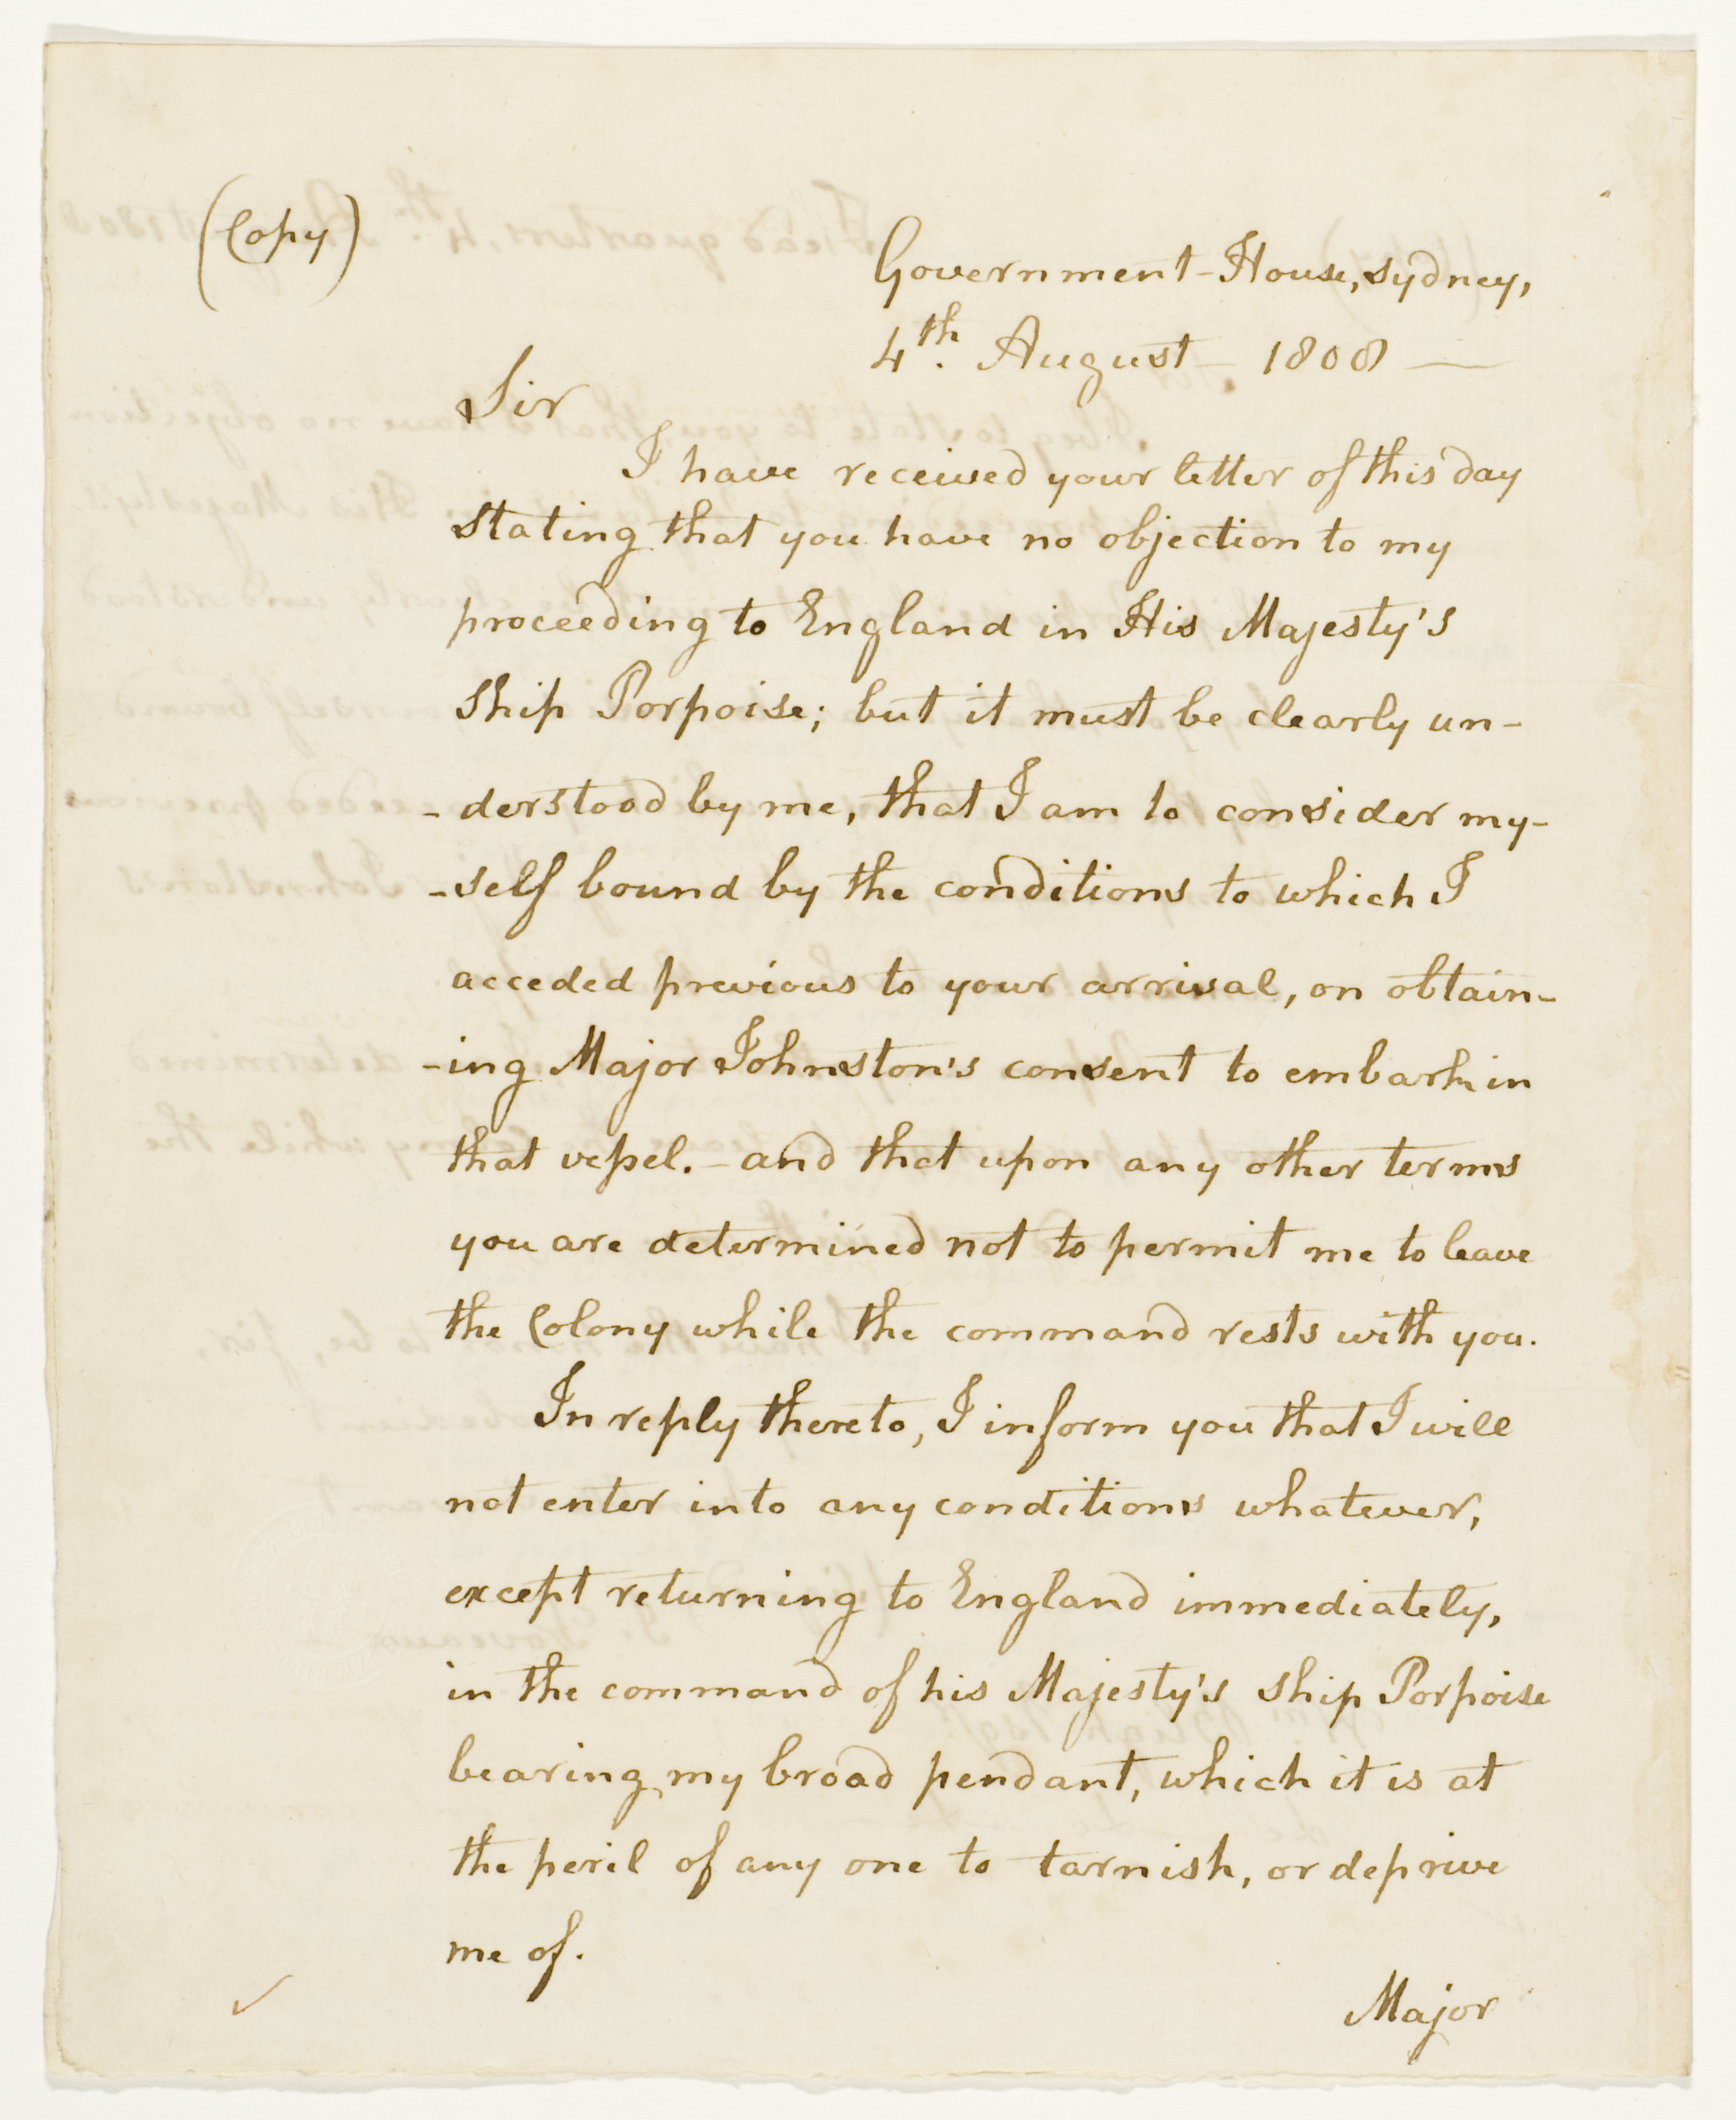 (Copy)
Government-House, Sydney,
4th. August - 1808 —
Sir
I have received your letter of this day
stating that you have no objection to my
proceeding to England in His Majesty's
Ship Porpoise; but it must be clearly un-
-derstood by me, that I am to consider my-
-self bound by the conditions to which I
acceded previous to your arrival, on obtain-
-ing Major Johnston's consent to embark in
that vessel. - and that upon any other terms
you are determined not to permit me to leave
the Colony while the command rests with you.
In reply thereto, I inform you that I will
not enter into any conditions whatever,
except returning to England immediately,
in the command of his Majesty's Ship Porpoise
bearing my broad pendant, which it is at
the peril of any one to tarnish, or deprive
me of.
Major